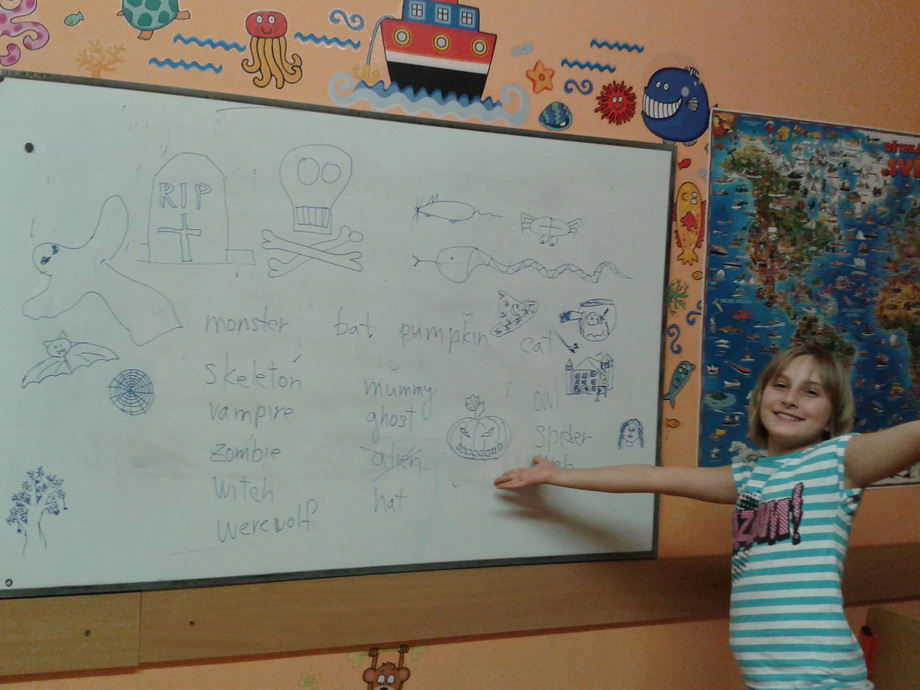 RIP
monster bat pumpkin cat
skeleton mummy owl
vampire ghost spider
zombie alien
witch hat
werewolf